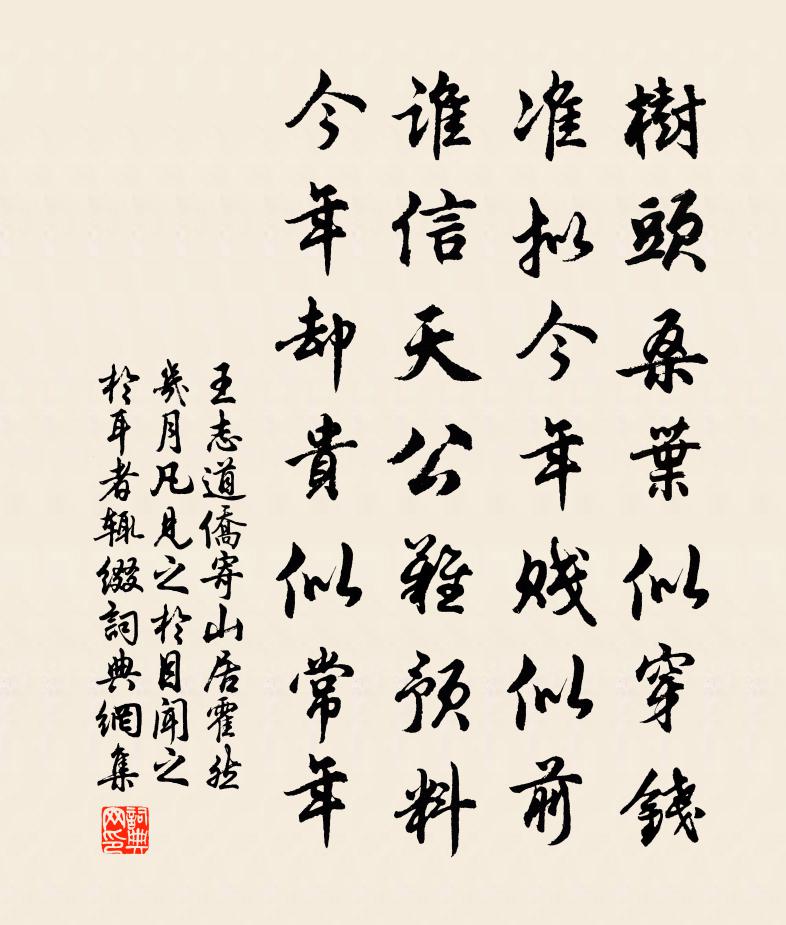 樹頭桑葉似穿錢
准拟今年賤似前
誰信天公難預料
今年却貴似常年
王志道僑寄山居霍然
幾月凡見之於目聞之
於耳者辄綴詞典網集
詞典网印